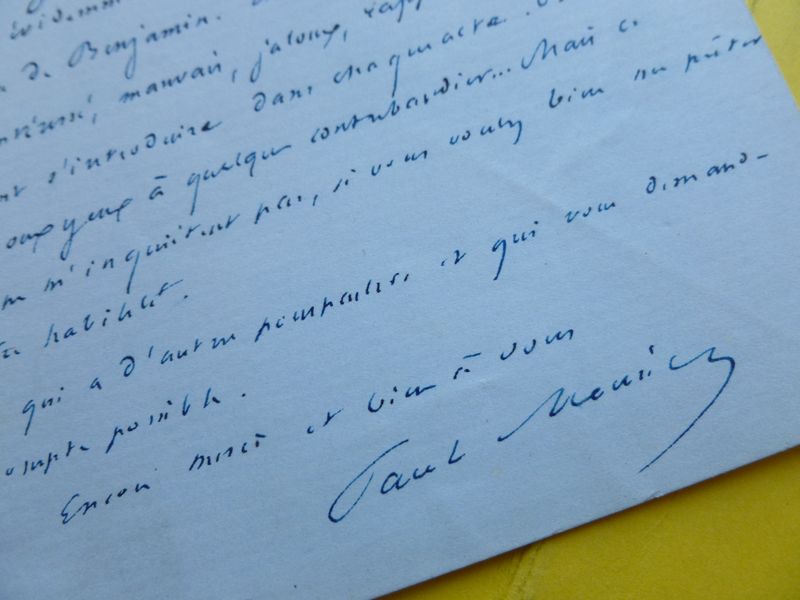 évidemm
de Benjamin.
intéressé, mauvais, jaloux, rapp
nt s'introduire dans chaque acte.
aux yeux à quelque contrebandier... Mais c
m'inquiètent pas, si vous voulez bien me prêter
habileté.
qui a d'autres et qui vous demand-
compte possible.
Encore merci et bien à vous
Paul Meurice